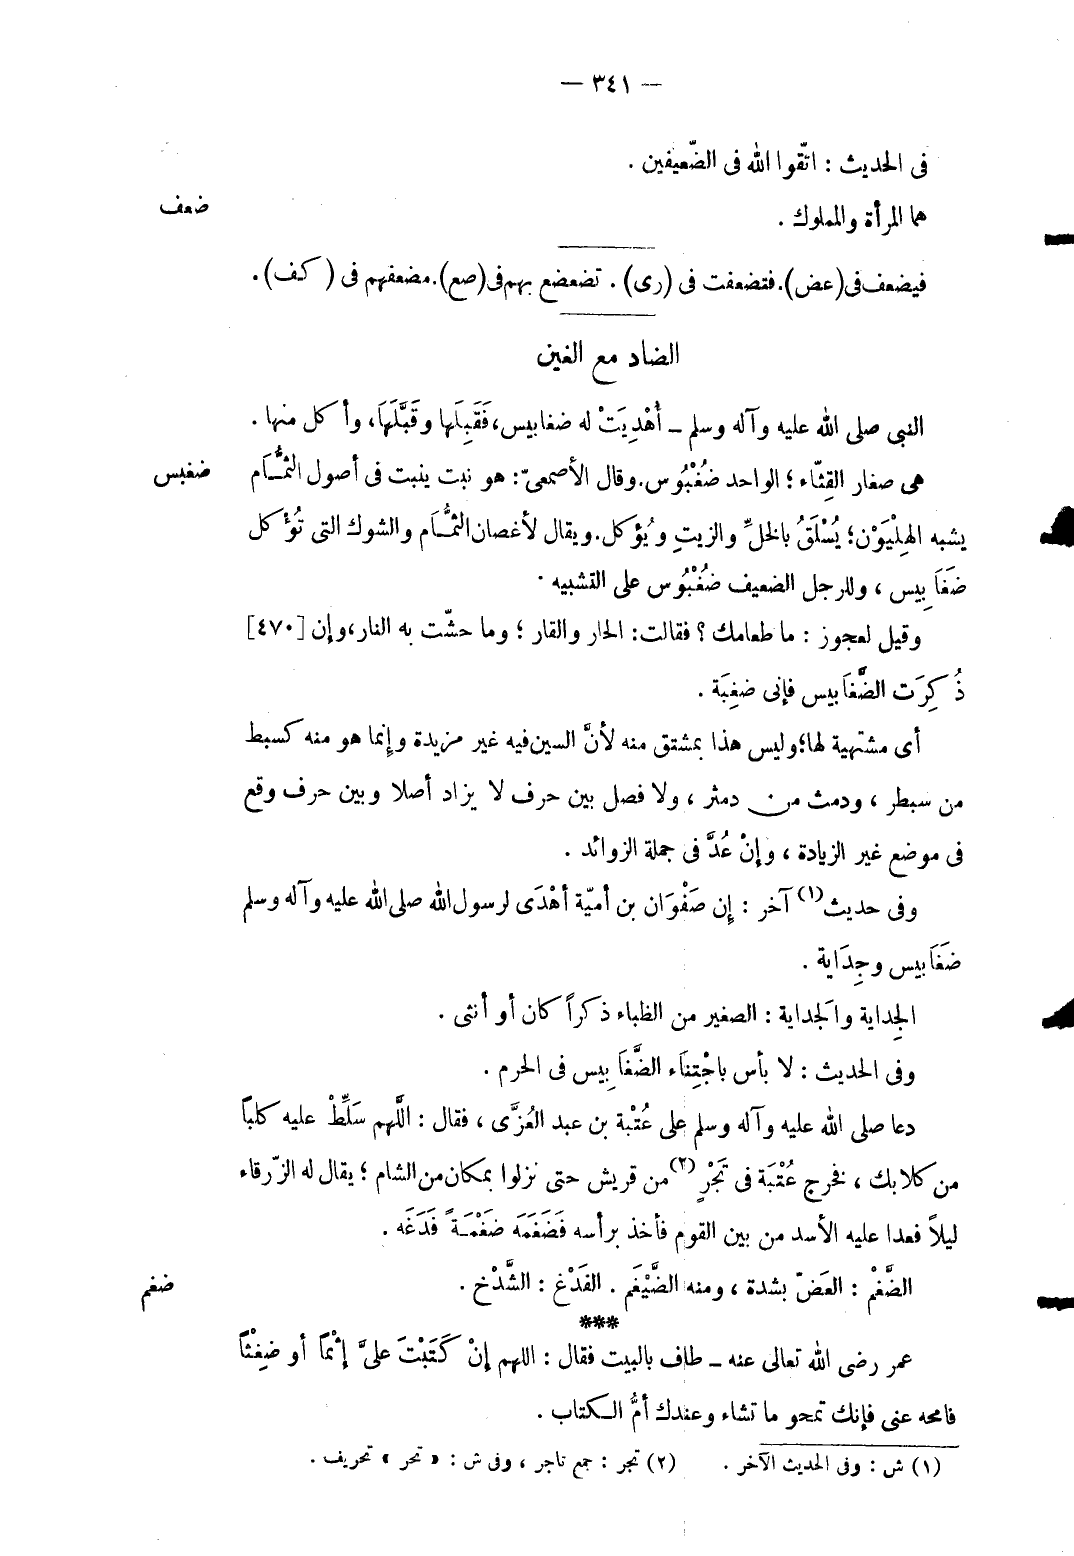 — ٣٤١ —
فى الحديث : اتّقوا الله فى الضّعيفين .
ضعف
هما المرأة والمملوك .
فيضعف فى (عض). فتضعفت فى (رى) . تضعضع بهم فى (صع). مضعفهم فى ( كف) .
الضاد مع الغين
النبى صلى الله عليه وآله وسلم ـ أُهْدِيَتْ له ضغابيس، فَقَبِلَها وقَبَّلَهَا، وأكل منها .
ضغبس
هى صغار القِثّاء ؛ الواحد ضُغْبُوس. وقال الأصمعىّ: هو نبت ينبت فى أصول الثُّمَام
يشبه الهِلْيَوْن؛ يُسْلَقُ بالخلِّ والزيتِ ويُؤكل. ويقال لأغصان الثُّمَام والشوك التى تُؤكل
ضَغَابِيس ، وللرجل الضعيف ضُغْبُوس على التشبيه .
وقيل لعجوز : ما طعامك ؟ فقالت: الحار والقار ؛ وما حشّت به النار، وإن [٤٧٠]
ذُكِرَت الضَّغَابيس فإنى ضغِبَة .
أى مشتهية لها؛ وليس هذا بمشتق منه لأنَّ السين فيه غير مزيدة وإنما هو منه كسبط
من سبطر ، ودمث من دمثر ، ولا فصل بين حرف لا يزاد أصلا وبين حرف وقع
فى موضع غير الزيادة ، وإنْ عُدَّ فى جملة الزوائد .
وفى حديث(١) آخر : إن صَفْوَان بن أميّة أهْدَى لرسول الله صلى الله عليه وآله وسلم
ضَغَابيس وجِدَاية .
الجِداية والجَداية : الصغير من الظباء ذكراً كان أو أنثى .
وفى الحديث : لا بأس باجْتِنَاء الضَّغَابِيس فى الحرم .
دعا صلى الله عليه وآله وسلم على عُتْبة بن عبد العُزَّى ، فقال : اللَّهم سَلِّطْ عليه كلباً
من كلابك ، فخرج عُتْبَة فى تَجْرٍ(٢) من قريش حتى نزلوا بمكان من الشام ؛ يقال له الزّرقاء
ليلاً فعدا عليه الأسد من بين القوم فأخذ برأسه فَضَغَمَه ضَغْمَةً فَدَغَه .
ضغم
الضَّغْم : العَضّ بشدة ، ومنه الضَّيْغَم . الفَدْغ : الشَّدْخ .
***
عمر رضى الله تعالى عنه ـ طاف بالبيت فقال : اللهم إنْ كَتَبْتَ علىَّ إثْمًا أو ضِغْثًا
فامحه عنى فإنك تمحو ما تشاء وعندك أمُّ الكتاب .
(١) ش : وفى الحديث الآخر . (٢) تجر : جمع تاجر ، وفى ش : « تحر » تحريف .